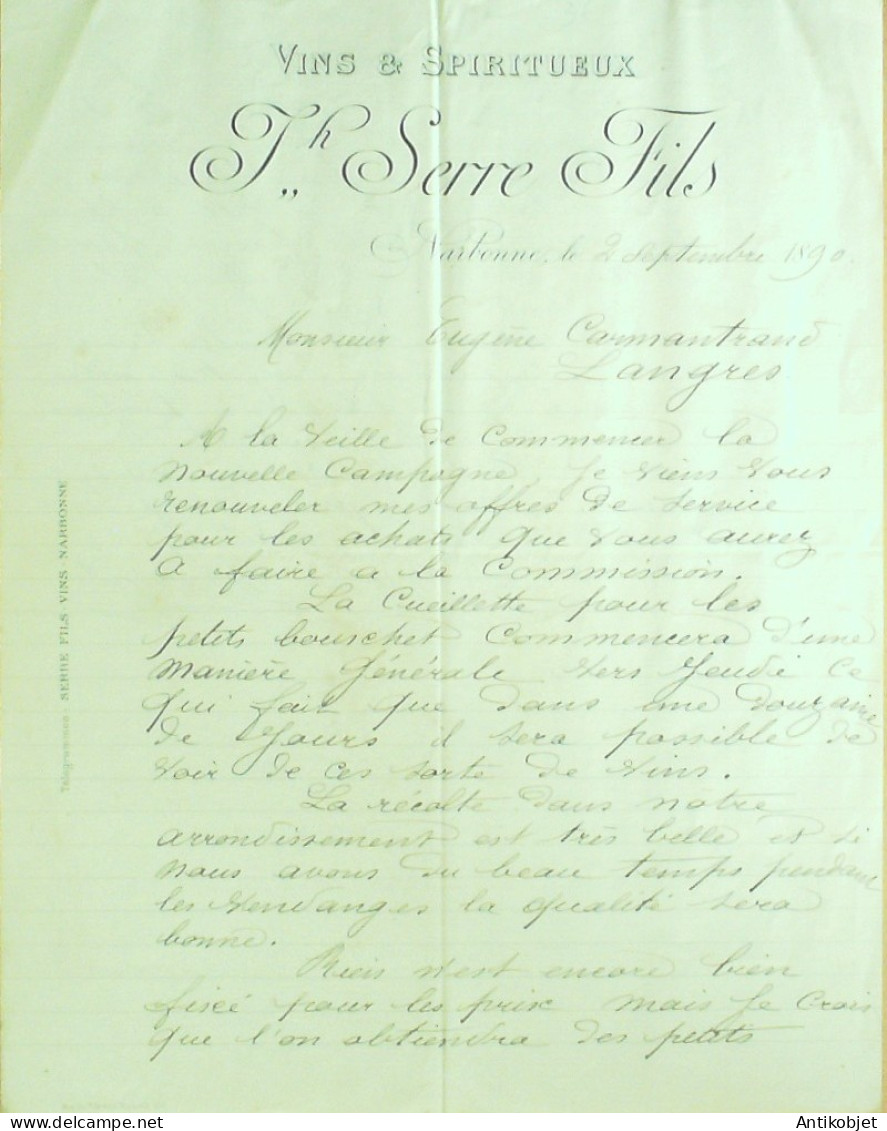 VINS & SPIRITUEUX
J.h Serre Fils
Narbonne, le 2 Septembre 1890.
Monsieur Eugène Carmantrand
Langres
A la veille de commencer la
nouvelle Campagne, Je viens vous
renouveler mes offres de service
pour les achats que vous aurez
a faire a la Commission.
La Cueillette pour les
petits bouschet Commencera d'une
manière Générale vers Jeudi ce
qui fait que dans une douzaine
de Jours il sera possible de
voir de ces sorte de vins.
La récolte dans nôtre
arrondissement est très belle et si
nous avons du beau temps pendant
les vendanges la qualité sera
bonne.
Rien n'est encore bien
fixé pour les prix mais Je Crois
que l'on obtiendra des petits
Télégrammes: SERRE FILS VINS NARBONNE
Antikobjet